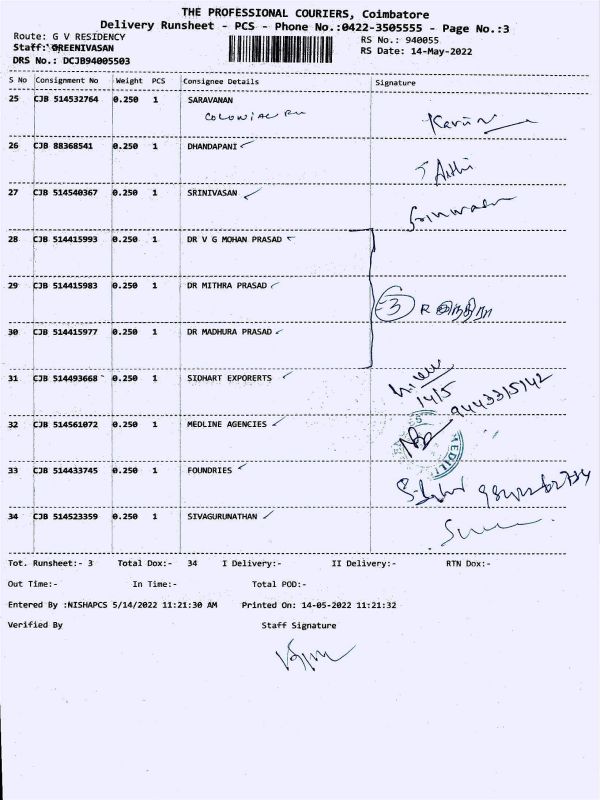 THE PROFESSIONAL COURIERS, Coimbatore
Delivery Runsheet - PCS - Phone No.:0422-3505555 - Page No.:3
Route: G V RESIDENCY RS No.: 940055
Staff: GREENIVASAN RS Date: 14-May-2022
DRS No.: DCJB94005503
S No Consignment No Weight PCS Consignee Details Signature
25 CJB 514532764 0.250 1 SARAVANAN
26 CJB 88368541 0.250 1 DHANDAPANI
27 CJB 514540367 0.250 1 SRINIVASAN
28 CJB 514415993 0.250 1 DR V G MOHAN PRASAD
29 CJB 514415983 0.250 1 DR MITHRA PRASAD
3 R இந்திரா
30 CJB 514415977 0.250 1 DR MADHURA PRASAD
31 CJB 514493668 0.250 1 SIDHART EXPORERTS
14/5
9443315142
32 CJB 514561072 0.250 1 MEDLINE AGENCIES
33 CJB 514433745 0.250 1 FOUNDRIES
34 CJB 514523359 0.250 1 SIVAGURUNATHAN
Tot. Runsheet:- 3 Total Dox:- 34 I Delivery:- II Delivery:- RTN Dox:-
Out Time:- In Time:- Total POD:-
Entered By :NISHAPCS 5/14/2022 11:21:30 AM Printed On: 14-05-2022 11:21:32
Verified By Staff Signature